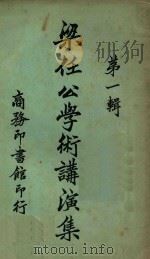 第一輯
梁任公學術講演集
商務印書館印行
www.du8.com